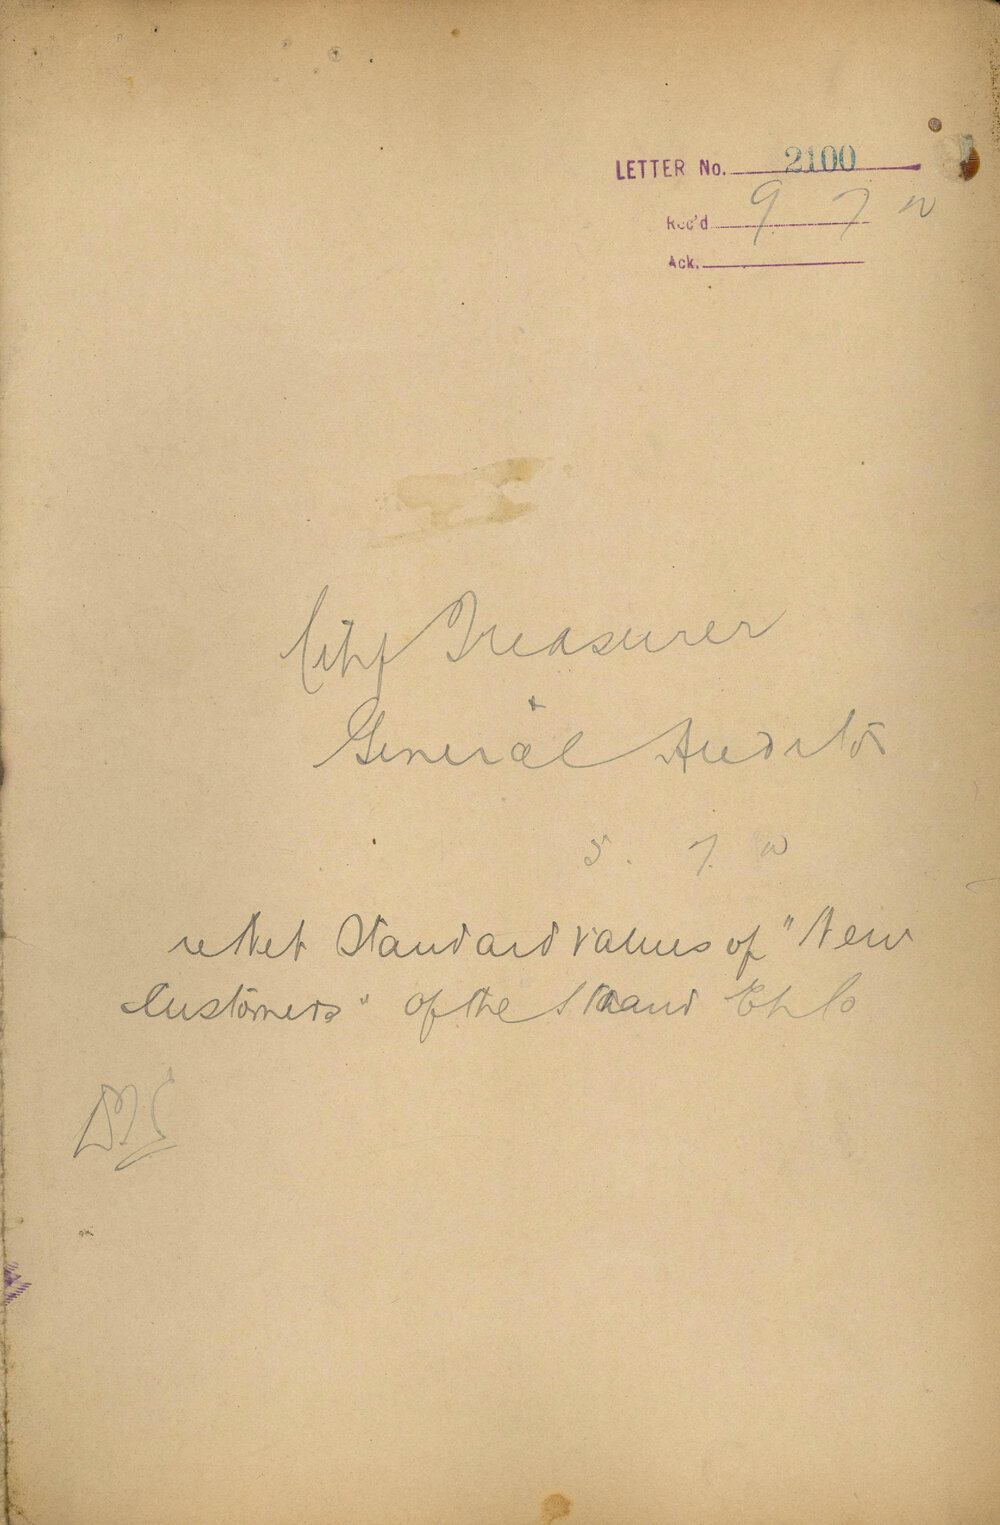 LETTER No. 2100
Rec'd 9 7
Ack.
City Treasurer
&
General Auditor
5. 7.
re Net Standard values of "New
Customers" of the Strand